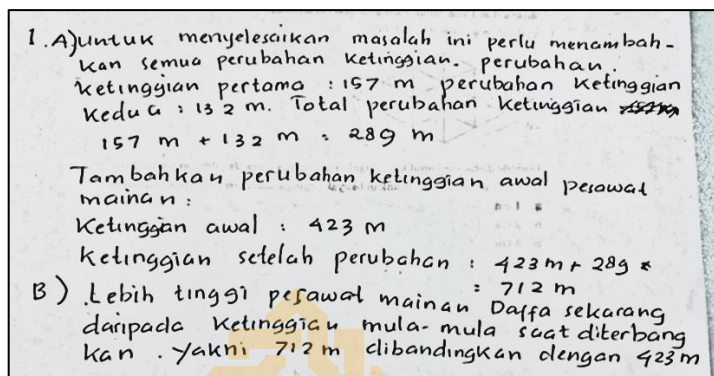 1. A) Untuk menyelesaikan masalah ini perlu menambah-
kan semua perubahan ketinggian. perubahan.
ketinggian pertama : 157 m perubahan ketinggian
kedua : 132 m. Total perubahan ketinggian
157 m + 132 m = 289 m
Tambahkan perubahan ketinggian awal pesawat
mainan :
Ketinggian awal : 423 m
Ketinggian setelah perubahan : 423 m + 289
= 712 m
B) Lebih tinggi pesawat mainan Daffa sekarang
daripada ketinggian mula-mula saat diterbang
kan. Yakni 712 m dibandingkan dengan 423 m